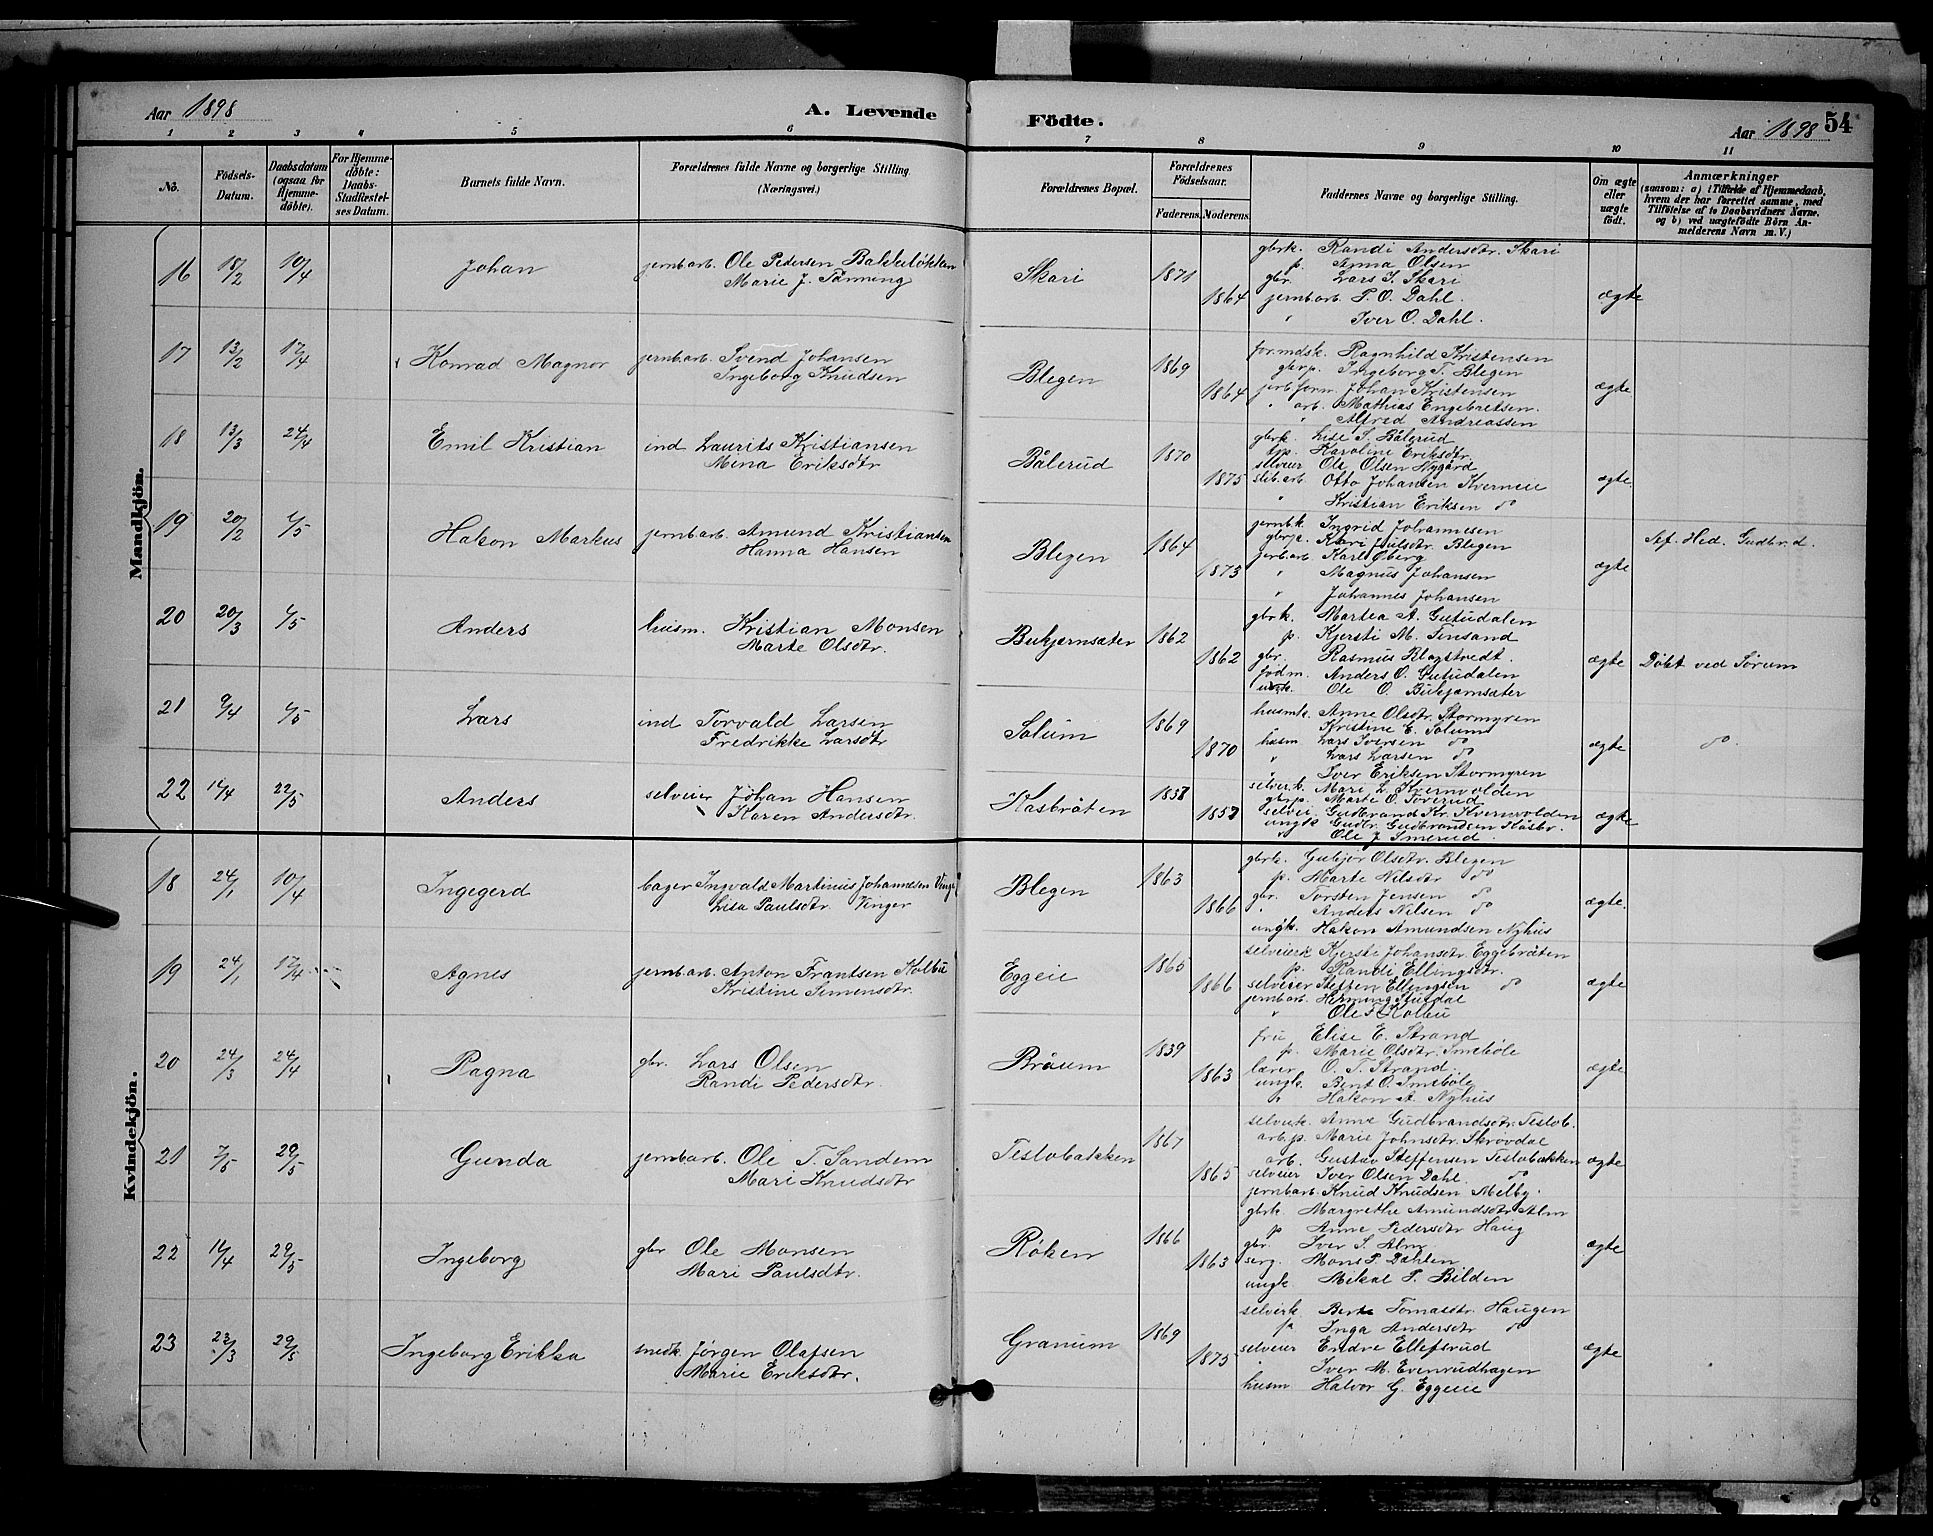 Aar 1898
A. Levende
Födte.
Aar 1898
54
1 2 3 4 5 6 7 8 9 10 11
No.
Födsels-Datum.
Daabsdatum (ogsaa for Hjemme-döbte).
For Hjemme-döbte: Daabs-Stadfæstel-ses Datum.
Barnets fulde Navn.
Forældrenes fulde Navne og borgerlige Stilling. (Næringsvei.)
Forældrenes Bopæl.
Forældrenes Födselsaar.
Faderens. Moderens.
Faddernes Navne og borgerlige Stilling.
Om ægte eller uægte födt.
Anmærkninger
(saasom: a) i Tilfælde af Hjemmedaab,
hvem der har forrettet samme, med
Tilföielse af to Daabsvidners Navne,
og b) ved uægtefödte Börn An-
melderens Navn m. V.)
Mandkjön.
16 18/2 10/4 Johan jernbarb. Ole Pedersen Bakkeløkken
Marie J. Tømming
Skari 1871 1864 ægte
gbrk. Randi Andersdtr. Skari
p. Anna Olsen
gbr. Lars I. Skari
jernbarb. P. O. Dahl.
" Iver O. Dahl.
17 13/2 17/4 Konrad Magnor jernbarb. Svend Johansen
Ingeborg Knudsen
Blegen 1869 1864 ægte
formdsk. Ragnhild Kristensen
gbrp. Ingeborg T. Blegen
jerb.form. Johan Kristensen
" arb. Mathias Engebretsen.
" Alfred Andreassen
18 13/3 24/4 Emil Kristian ind Laurits Kristiansen
Mina Eriksdtr
Bålerud 1870 1875 ægte.
gbrk. Lise S. Bålerud
Karoline Eriksdtr.
selveier Ole Olsen Nygård
slib.arb. Otto Johansen Kverneie
" Kristian Eriksen do
19 20/2 1/5 Hakon Markus jernbarb. Amund Kristiansen
Hanna Hansen
Blegen 1864 1873 ægte
jernb.k. Ingrid Johannesen
gbrp. Kari Paulsdtr. Blegen
jerbarb Karl Øberg
" Magnus Johansen
" Johannes Johansen
Af. Hed. Gudbr.d.
20 20/3 1/5 Anders husm. Kristian Monsen
Marte Olsdtr.
Bukjernsæter 1862 1862 ægte
gbrk. Martea A. Gutudalen
p. Kjersti M. Finsand
gbr. Rasmus Blagstvedt.
födm. Anders O. Gutudalen
ungk. Ole O. Bukjernsæter
Döbt ved Sørum
21 9/4 1/5 Lars ind Torvald Larsen
Fredrikke Larsdtr
Solum 1869 1870 ægte
husmk. Anne Olsdtr. Stormyren
" Kristine E. Solum
husm Lars Iversen do
" Lars Larsen do
" Iver Eriksen Stormyren
do.
22 14/4 22/5 Anders selveier Johan Hansen
Karen Andersdtr.
Kasbråten 1857 1857 ægte
selveierk. Mari L. Kvernvolden
gbrp. Marte O. Toverud
selvei. Gudbrand Kr. Kvernvolden
ungk Gudbr. Gudbrandsen Kasbr.
" Ole J Smerud
Kvindekjön.
18 24/1 10/4 Ingegerd bager Ingvald Martinus Johannesen Vinge
Lisa Paulsdtr. Vinger
Blegen 1863 1866 ægte.
gbrk. Gubjør Olsdtr. Blegen
p. Marte Nilsdtr do
gbr. Torsten Jensen do
" Anders Nilsen do
ungk. Hakon Amundsen Nyhus
19 24/1 17/4 Agnes jernbarb. Anton Frantsen Kolbu
Kristine Simensdtr.
Eggeie 1865 1866 ægte
selveierk Kjersti Johansdtr. Eggebråten
p. Randi Ellingsdtr.
selveier Steffen Ellingsen do
jernbarb. Herming Stusdal
" Ole F Kolbu
20 24/3 24/4 Ragna gbr. Lars Olsen
Randi Pedersdtr.
Bråum 1839 1863 ægte
fru Elise E. Strand
p. Marie Olsdtr. Smeböle
lærer O. T. Strand.
ungk. Bent O. Smeböle
" Hakon A. Nyhus
21 7/5 29/5 Gunda jernbarb. Ole T. Sandem
Mari Knudsdtr
Teslobakken 1867 1865 ægte
selveierk. Anne Gudbrandsdtr. Teslob.
arb.p. Marie Johnsdtr. Skrövdal
arb. Gustav Steffensen Teslobakken
selveier Iver Olsen Dahl. do
jernbarb. Knud Knudsen Melby.
22 14/4 29/5 Ingeborg gbr Ole Monsen
Mari Paulsdtr.
Röken 1866 1863 ægte
gbrk. Margrethe Amundsdtr Alm
p Anne Pedersdtr Haug
gbr. Iver S. Alm
serg. Mons P. Dahlen.
ungk Mikal P. Bilden
23 23/3 29/5 Ingeborg Erikka snedk. Jørgen Olafsen
Marie Eriksdtr.
Granum 1869 1875 ægte
selveierk Berte Tomasdtr. Haugen
p Inga Andersdtr do
selveier Endre Ellefsrud
" Iver M. Evenrudhagen
husm Halvor G. Eggeie